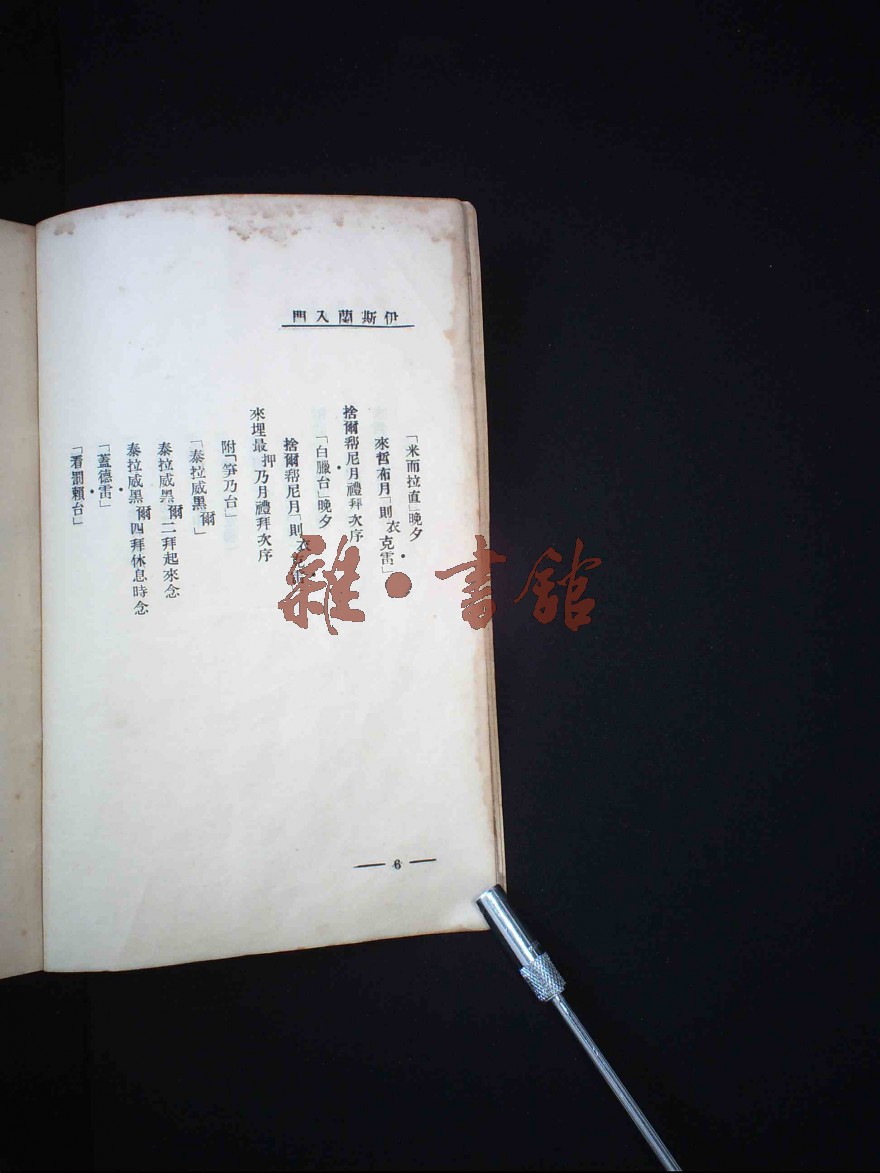 伊斯蘭入門
「米而拉直」晚夕
來哲布月「則衣克雷」
捨爾帮尼月禮拜次序
「白臘台」晚夕
捨爾帮尼月「則衣克雷」
來埋最押乃月禮拜次序
附「笋乃台」
「泰拉威黑爾」
泰拉威黑爾二拜起來念
泰拉威黑爾四拜休息時念
「蓋德雷」
「看罰賴台」
— 6 —
雜·書館